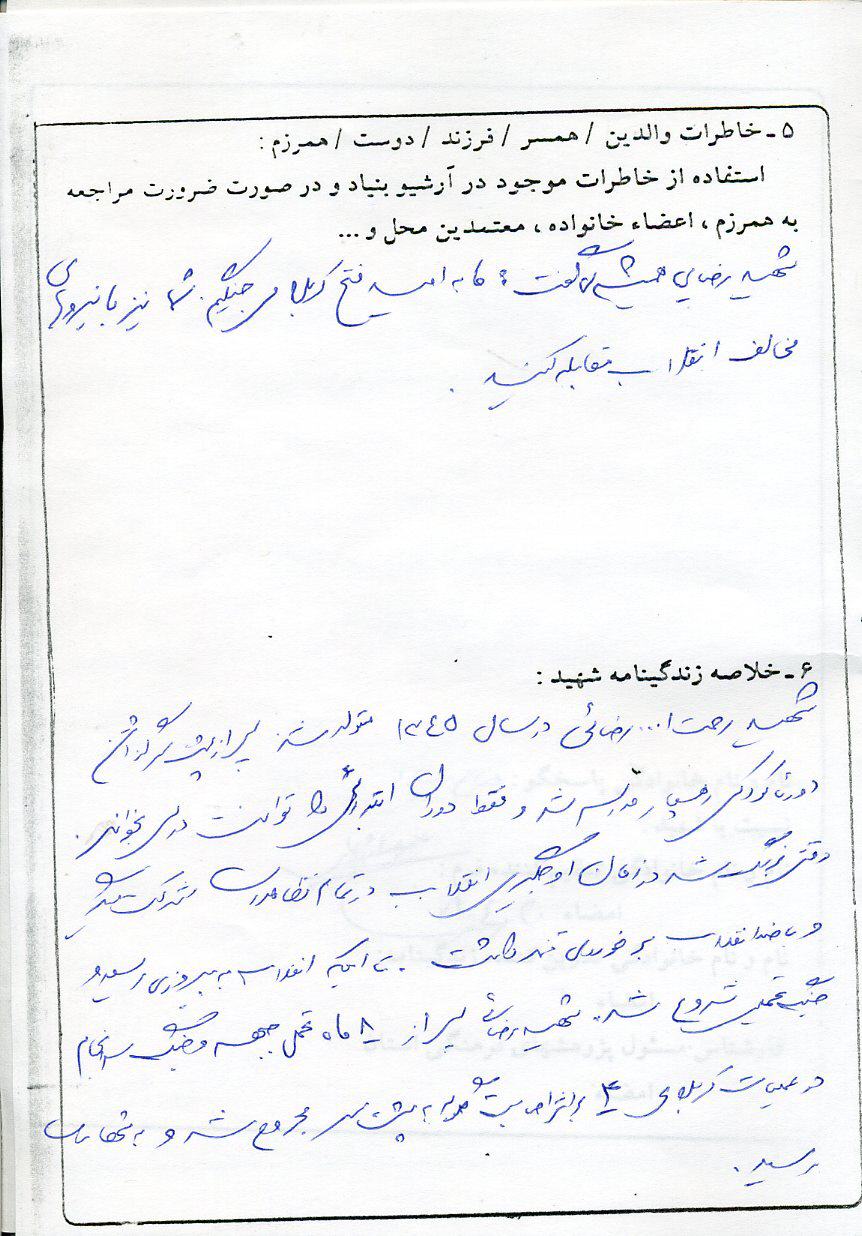 ۵ ـ خاطرات والدین / همسر / فرزند / دوست / همرزم :
استفاده از خاطرات موجود در آرشیو بنیاد و در صورت ضرورت مراجعه
به همرزم ، اعضاء خانواده ، معتمدین محل و ...
شهید رضایی همیشه می گفت : ما به امید فتح کربلا می جنگیم. شما نیز با نیروهای
مخالف انقلاب مقابله کنید .
۶ ـ خلاصه زندگینامه شهید :
شهید رحمت ا... رضائی در سال ۱۳۴۵ متولد شد پس از پشت سر گذاشتن
دوره کودکی رهسپار مدرسه شد و فقط دوران ابتدائی را توانست درس بخواند .
وقتی بزرگ شد در سال اوجگیری انقلاب در تمام تظاهرات شرکت میکرد
و با ضد انقلاب برخوردی تند داشت . تا اینکه انقلاب به پیروزی رسید و
جنگ تحمیلی شروع شد. شهید رضائی پس از ۸ ماه تحمل جبهه و جنگ سرانجام
در عملیات کربلای ۴ بر اثر اصابت گلوله به پشت سر مجروح شد و به شهادت
رسید .